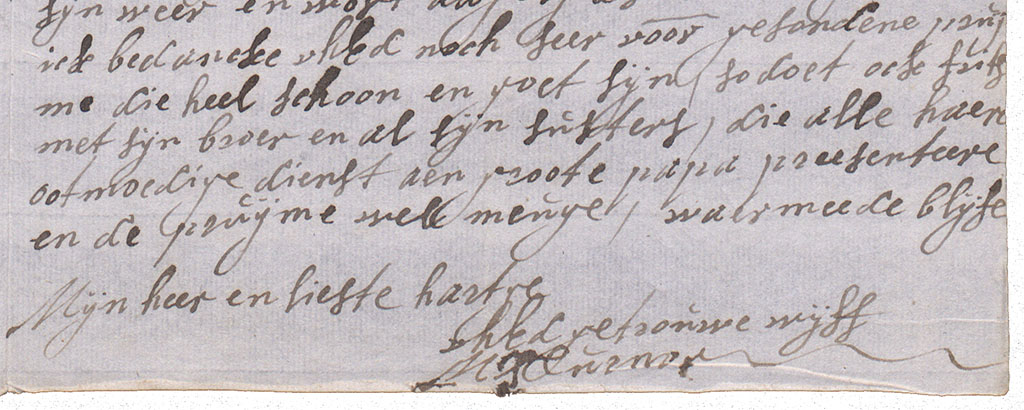 sijn weer en wort
ick bedancke uEed noch seer voor gesondene pruij
me die heel schoon en goet sijn, so doet ock frits
met sijn broer en al sijn susters, die alle haer
ootmoedige dienst aen groote papa preesenteere
en de pruijme wel meuge, waermeede blijfe
Mijn heer en liefste hartge
uEed getrouwe wijff
M Turnor